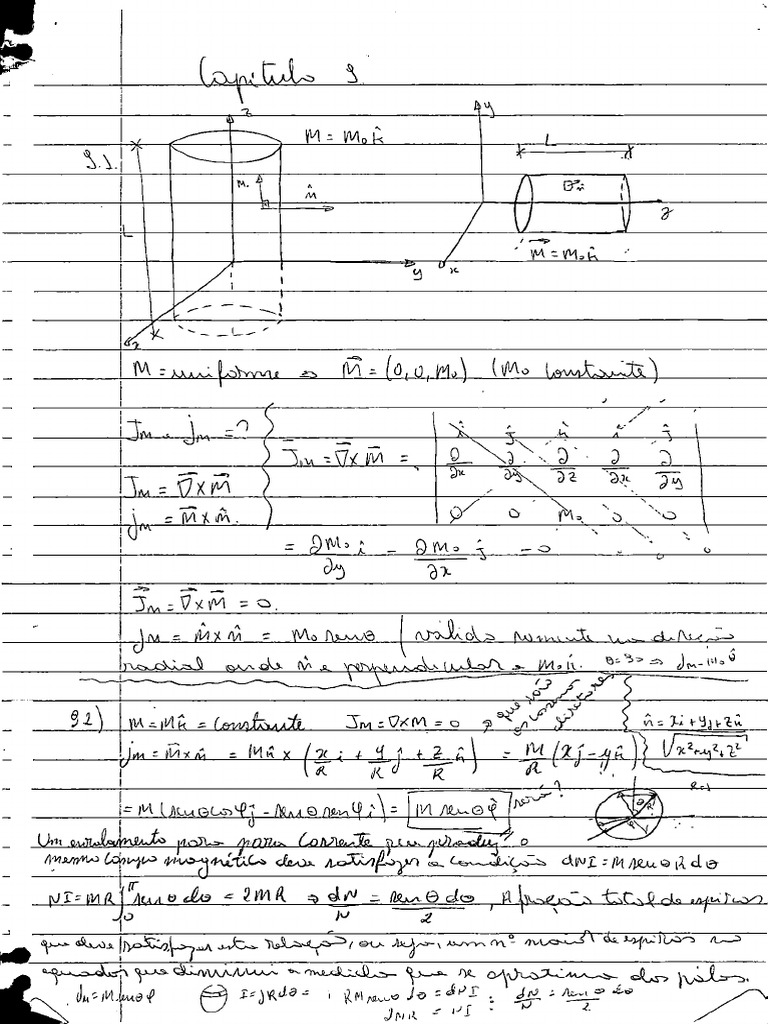 Capítulo 9
9.1.
z
M = M₀k̂
M₀
n̂
L
y
x
y
L
n̂
z
x
M⃗ = M₀k̂
M = uniforme ⇒ M⃗ = (0, 0, M₀) (M₀ constante)
Jm e jm = ?
Jm = ∇⃗×M⃗
jm = M⃗×n̂.
J⃗m = ∇⃗×M⃗ =
î ĵ k̂ î ĵ
∂/∂x ∂/∂y ∂/∂z ∂/∂x ∂/∂y
0 0 M₀ 0 0
= ∂M₀/∂y î − ∂M₀/∂x ĵ = 0
J⃗m = ∇⃗×M⃗ = 0.
jm = M⃗×n̂ = M₀ senθ (válido somente na direção
radial onde n̂ é perpendicular a M₀k̂. θ=90 ⇒
9.2) M = Mk̂ = constante Jm = ∇×M = 0 → que são os cossenos diretores
n̂ = xi+yj+zk̂
√x²+y²+z²
jm = M⃗×n̂ = Mk̂ × (x/R i + y/R ĵ + z/R k̂) = M/R (xĵ − yk̂) !?
R=1
= M(senθcosφĵ − senθsenφî) = M senθφ̂ será?
θ
R
Um enrolamento para para corrente que produz o
mesmo campo magnético deve satisfazer a condição dNI = MsenθRdθ
NI = MR∫₀^π senθdθ = 2MR ⇒ dN/N = senθdθ/2, A fração total de espiras
que deve satisfazer esta relação, ou seja, um nº maior de espiras no
equador que diminui a medida que se aproxima dos pólos.
jm = Msenθφ I = jRdθ = , RMsenθdθ = dNI ; dN/N = senθdθ/2
2MR = NI